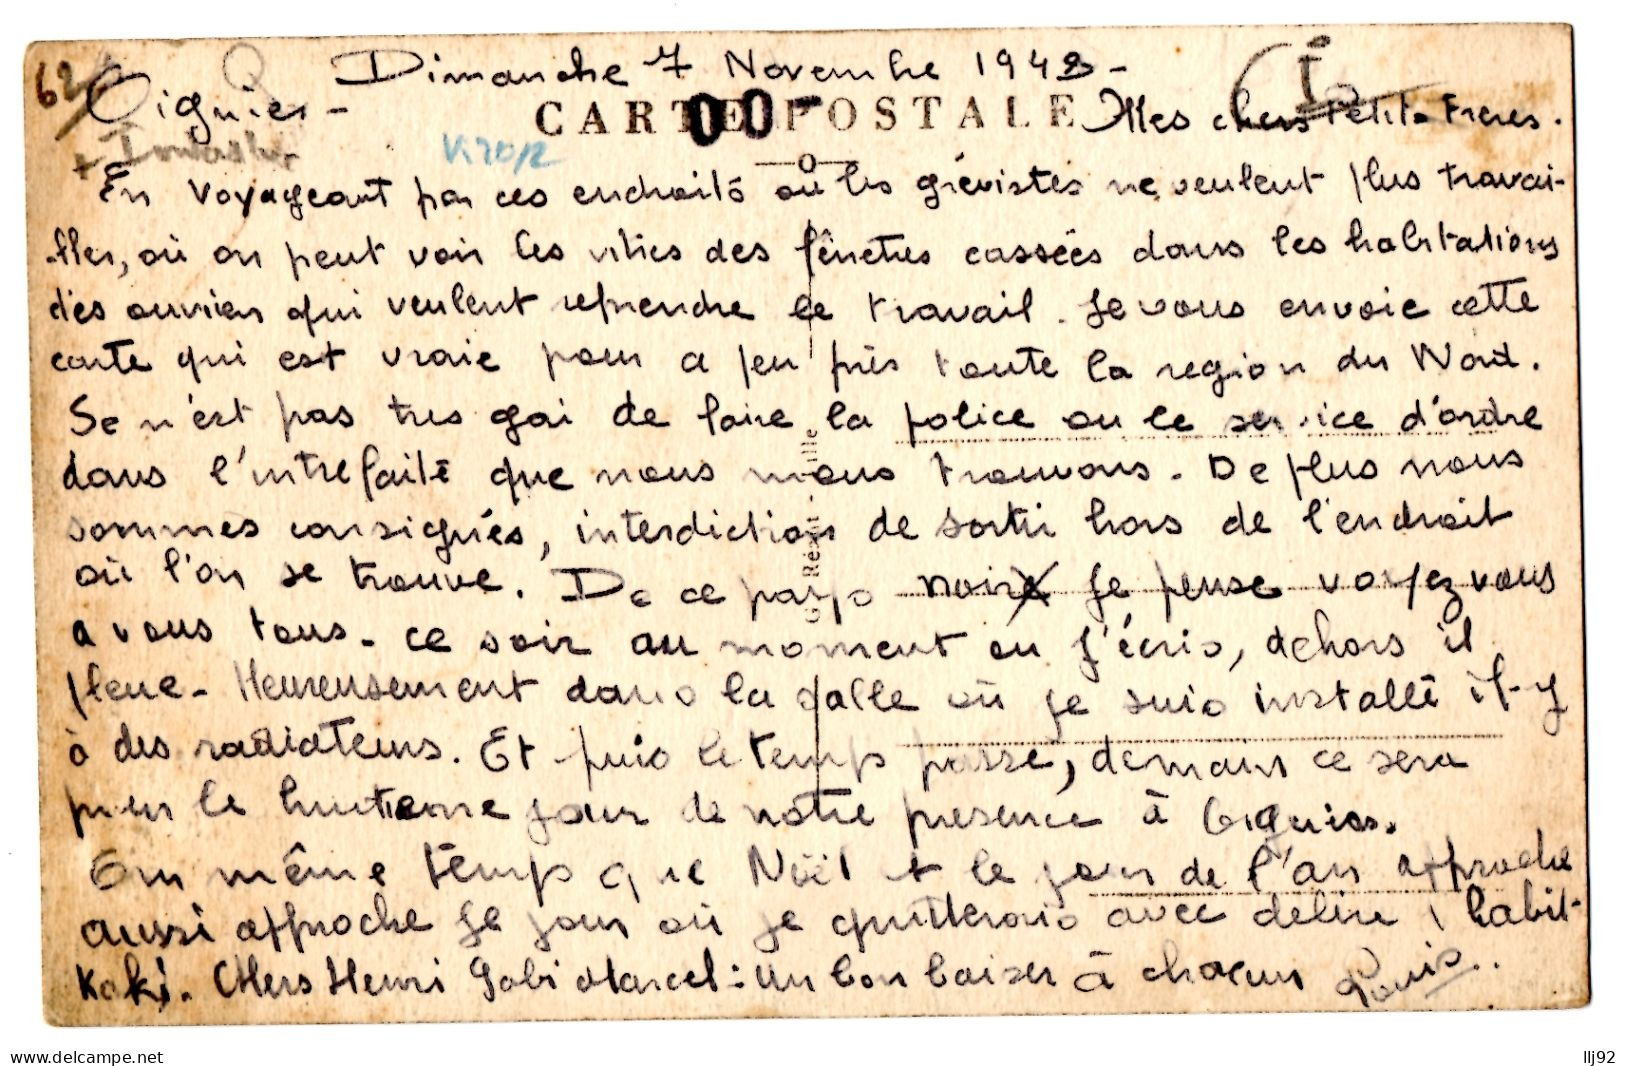 62
Dimanche 7 Novembre 1948 -
Oignies -
CARTE POSTALE
00-
Mes chers Petits Freres.
En voyageant par ces endroits où les grévistes ne veulent plus travai-
-ller, où on peut voir les vitres des fênetres cassées dans les habitations
des ouvriers qui veulent reprendre le travail. Je vous envoie cette
carte qui est vraie pour a peu près toute la region du Nord.
Se n'est pas tres gai de faire la police ou le service d'ordre
dans l'intrefaite que nous nous trouvons. De plus nous
sommes consignés, interdiction de sortir hors de l'endroit
où l'on se trouve. De ce pays noir je pense voyez vous
a vous tous. ce soir au moment ou j'écris, dehors il
pleue - Heureusement dans la salle où je suis installé il-y
à des radiateurs. Et puis le temps passe, demain ce sera
pour le huitieme jour de notre presence à Oignies.
En même temps que Noël et le jour de l'an approche
aussi approche le jour où je quitterais avec delire l'habit-
Kaki. Chers Henri Gabi Marcel : Un bon baiser à chacun Louis.
www.delcampe.net
llj92